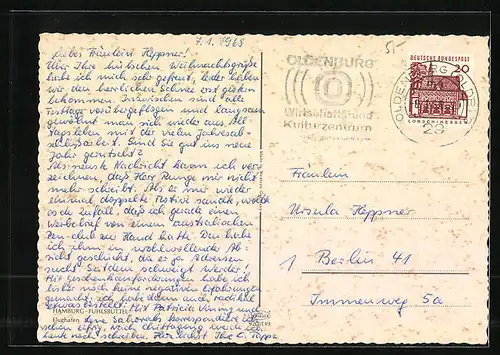 7.1.1968
Liebes Fräulein Heppner!
Über Ihre hübschen Weihnachtsgrüße
habe ich mich sehr gefreut, leider haben
wir den herrlichen Schnee erst gestern
bekommen. Inzwischen sind alle
Festtage vorübergeflogen und langsam
gewöhnt man sich wieder ans All-
tagsleben mit der vielen Jahresab-
schlußarbeit. Sind Sie gut ins neue
Jahr gerutscht?
Als neuste Nachricht kann ich ver-
zeichnen, daß Herr Runge mir nicht
mehr schreibt. Als er mir wieder
einmal doppelte Festive sandte, wollte
es de Zufall, daß ich gerade einen
Werbebrief von einem australischen
Pen-club zur Hand hatte. Den habe
ich ihm in wohlwollender Ab-
sicht geschickt, da er ja Adressen
sucht. Seitdem schweigt er wieder!
Mit
habe ich
bisher noch keine negativen Erfahrungen
gemacht, ich habe dann auch radikal
Mit Patricia Vining und
korrespondiere ich
schon eifrig, nach
heute noch schreiben. Herzlichst Ihre C.
HAMBURG-FUHLSBÜTTEL
Flughafen
5/-
OLDENBURG
Wirtschafts- und
Kulturzentrum
OLDENBURG (OLDB)
23
DEUTSCHE BUNDESPOST
20
LORSCH/HESSEN
Fräulein
Ursula Heppner
1 Berlin 41
Immenweg 5a